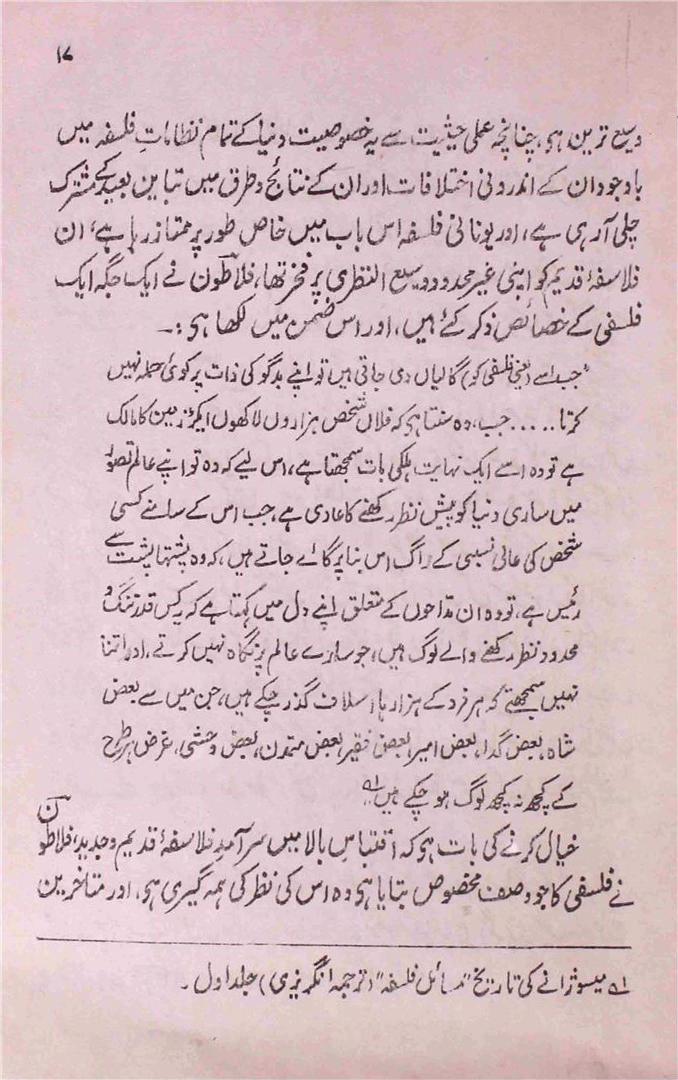 ۱۷
وسیع ترین ہی، چنانچہ عملی حیثیت سے یہ خصوصیت دنیا کے تمام نظاماتِ فلسفہ میں
باوجود ان کے اندرونی اختلافات اور ان کے نتائج و طرق میں تباین بعید کے مشترک
چلی آ رہی ہے، اور یونانی فلسفہ اس باب میں خاص طور پر ممتاز رہا ہے، ان
فلاسفۂ قدیم کو اپنی غیر محدود و وسیع النظری پر فخر تھا، فلاطون نے ایک جگہ ایک
فلسفی کے خصائص ذکر کئے ہیں، اور اس ضمن میں لکھا ہی :۔
"جب اسے (یعنی فلسفی کو) گالیاں دی جاتی ہیں تو اپنے بدگو کی ذات پر کوئی حملہ نہیں
کرتا ..... جب، وہ سنتا ہی کہ فلاں شخص ہزاروں لاکھوں ایکڑ زمین کا مالک
ہے تو وہ اسے ایک نہایت ہلکی بات سمجھتا ہے، اس لیے کہ وہ تو اپنے عالم تصور
میں ساری دنیا کو پیشِ نظر رکھنے کا عادی ہے، جب اس کے سامنے کسی
شخص کی عالی نسبی کے راگ اس بنا پر گائے جاتے ہیں، کہ وہ پشتہا پشت سے
رئیس ہے، تو وہ ان مداحوں کے متعلق اپنے دل میں کہتا ہے کہ یہ کس قدر تنگ و
محدود نظر رکھنے والے لوگ ہیں، جو سارے عالم پر نگاہ نہیں کرتے، اور اتنا
نہیں سمجھتے کہ ہر فرد کے ہزارہا اسلاف گذر چکے ہیں، جن میں سے بعض
شاہ، بعض گدا، بعض امیر، بعض فقیر، بعض متمدن، بعض وحشی، غرض ہر طرح
کے کچھ نہ کچھ لوگ ہو چکے ہیں"۱؎
خیال کرنے کی بات ہی کہ اقتباسِ بالا میں سرآمدِ فلاسفۂ قدیم و جدید، فلاطون
نے فلسفی کا جو وصف مخصوص بتایا ہی وہ اس کی نظر کی ہمہ گیری ہی، اور متاخرین
۱؎ میسو ژانے کی تاریخ "مسائل فلسفہ" (ترجمہ انگریزی) جلد اول ۔